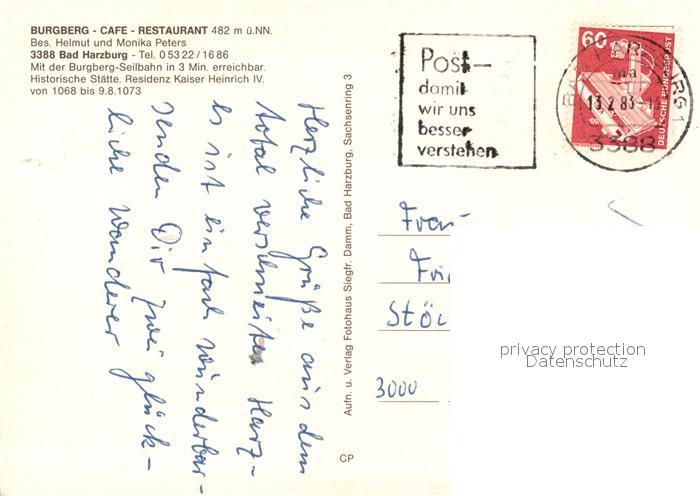 BURGBERG - CAFE - RESTAURANT 482 m ü.NN.
Bes. Helmut und Monika Peters
3388 Bad Harzburg - Tel. 0 53 22 / 16 86
Mit der Burgberg-Seilbahn in 3 Min. erreichbar.
Historische Stätte. Residenz Kaiser Heinrich IV.
von 1068 bis 9.8.1073
Herzliche Grüße aus dem
total verschneiten Harz-
es ist einfach wunderbar-
senden Dir zwei glück-
liche Wanderer
Aufn. u. Verlag Fotohaus Siegfr. Damm, Bad Harzburg, Sachsenring 3
CP
Post-
damit
wir uns
besser
verstehen
60
DEUTSCHE BUNDESPOST
13.2.83
3388
Frau
Stöc
3000
privacy protection
Datenschutz